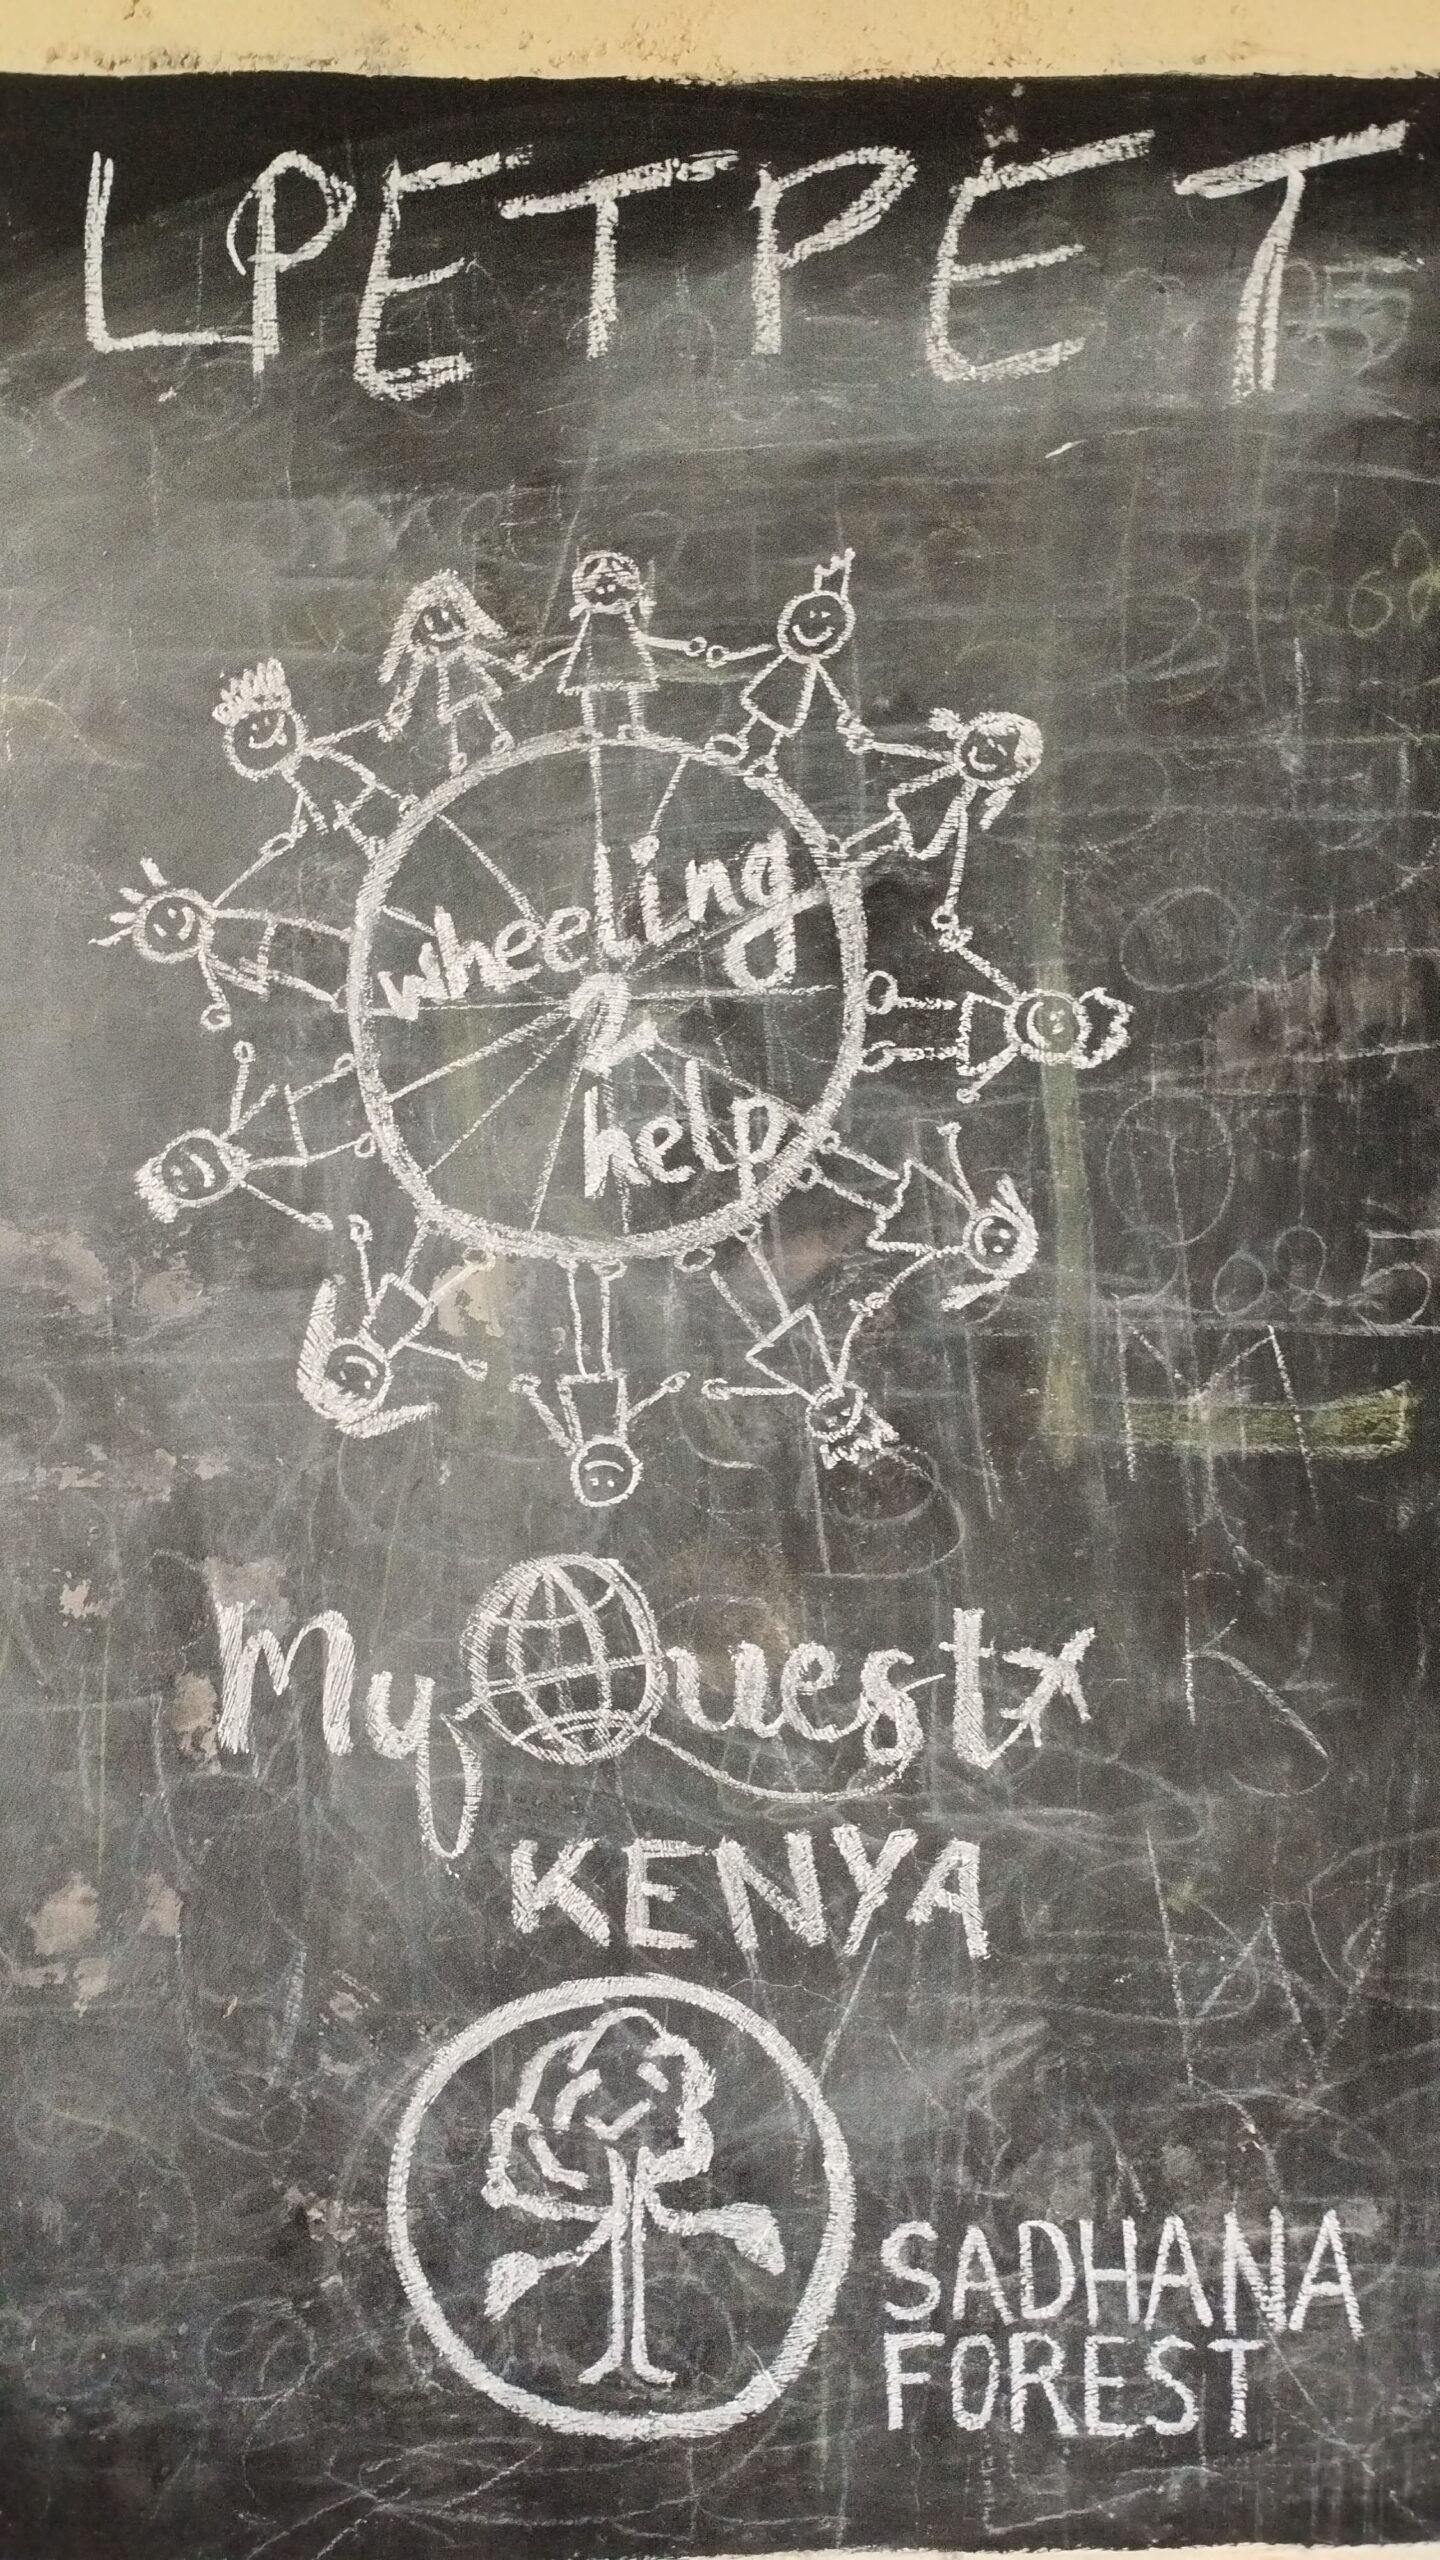 LPETPET
wheeling
2
help
My Quest
KENYA
SADHANA
FOREST